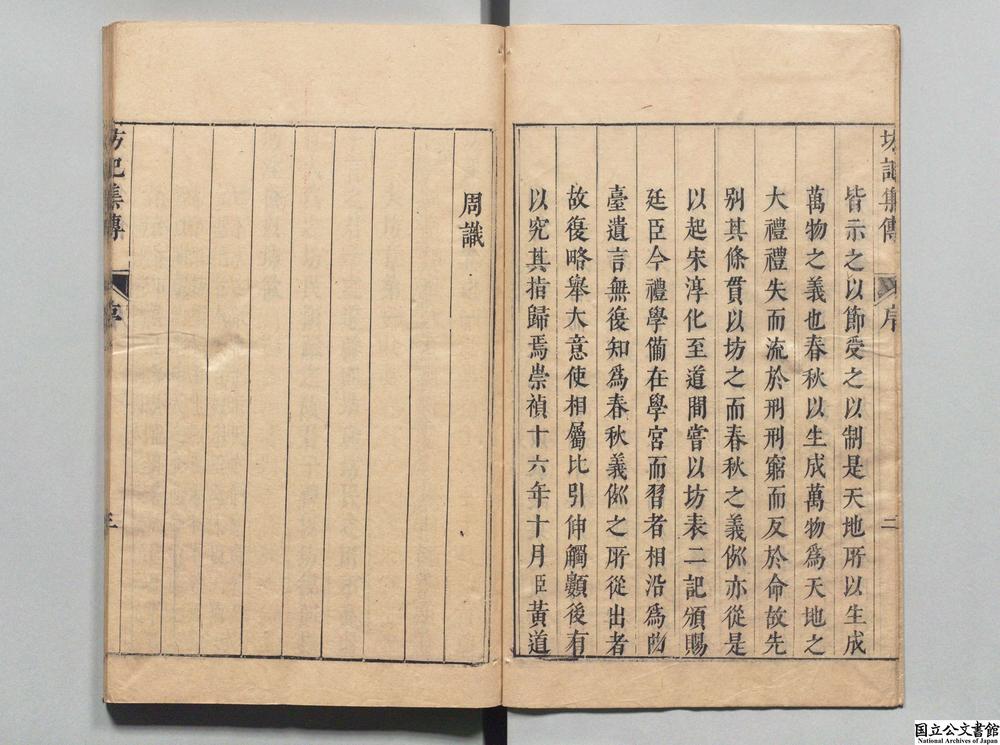 坊記集傳
序
二
皆示之以節受之以制是天地所以生成
萬物之義也春秋以生成萬物爲天地之
大禮禮失而流於刑刑窮而反於命故先
别其條貫以坊之而春秋之義例亦從是
以起宋淳化至道間嘗以坊表二記頒賜
廷臣今禮學備在學宮而習者相沿爲
臺遺言無復知爲春秋義例之所從出者
故復略舉大意使相屬比引伸觸類後有
以究其指歸焉崇禎十六年十月臣黃道
周識
坊記集傳
序
三
国立公文書館
National Archives of Japan